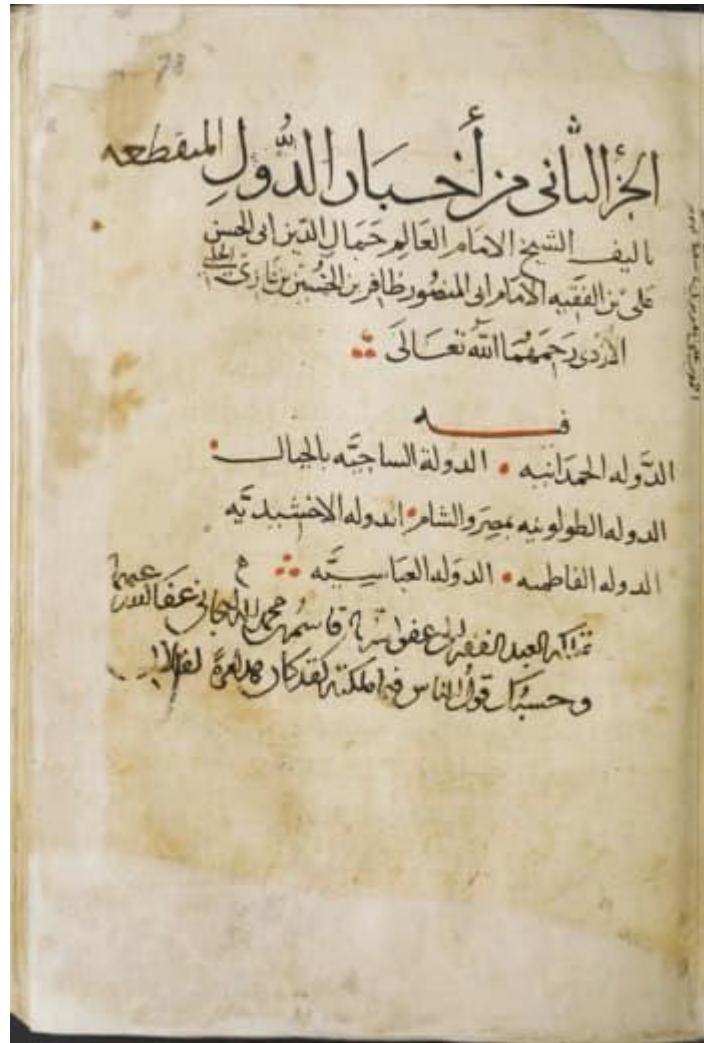 78
الجزء الثاني من أخبار الدُّولِ المنقطعه
تاليف الشيخ الامام العالم جمال الدين ابى الحسن
على بن الفقيه الامام ابى المنصور ظافر بن الحسين بن غازى الحلبي
الازدى رحمهما الله تعالى
فيه
الدَّوله الحمدانيه الدولة الساجيَّه بالجبال
الدوله الطولونيه بمصر والشام الدوله الاخشيديَّه
الدوله الفاطميه الدوله العباسيَّه
العبد الفقير الى عفو الله قاسم بن محمد عفا الله عنهما
وحسبك قول الناس فيما ملكته لقد كان هذا مرةً لفلان